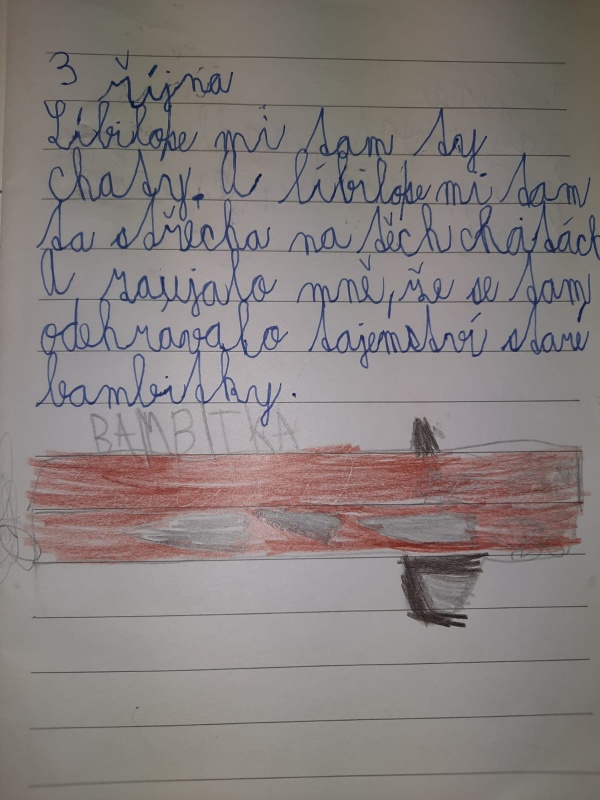 3 října
Líbilose mi tam ty
chaty. A líbilose mi tam
ta střecha na těch chatách
A zaujalo mně, že se tam
odehrávalo tajemství staré
bambitky.
BAMBITKA